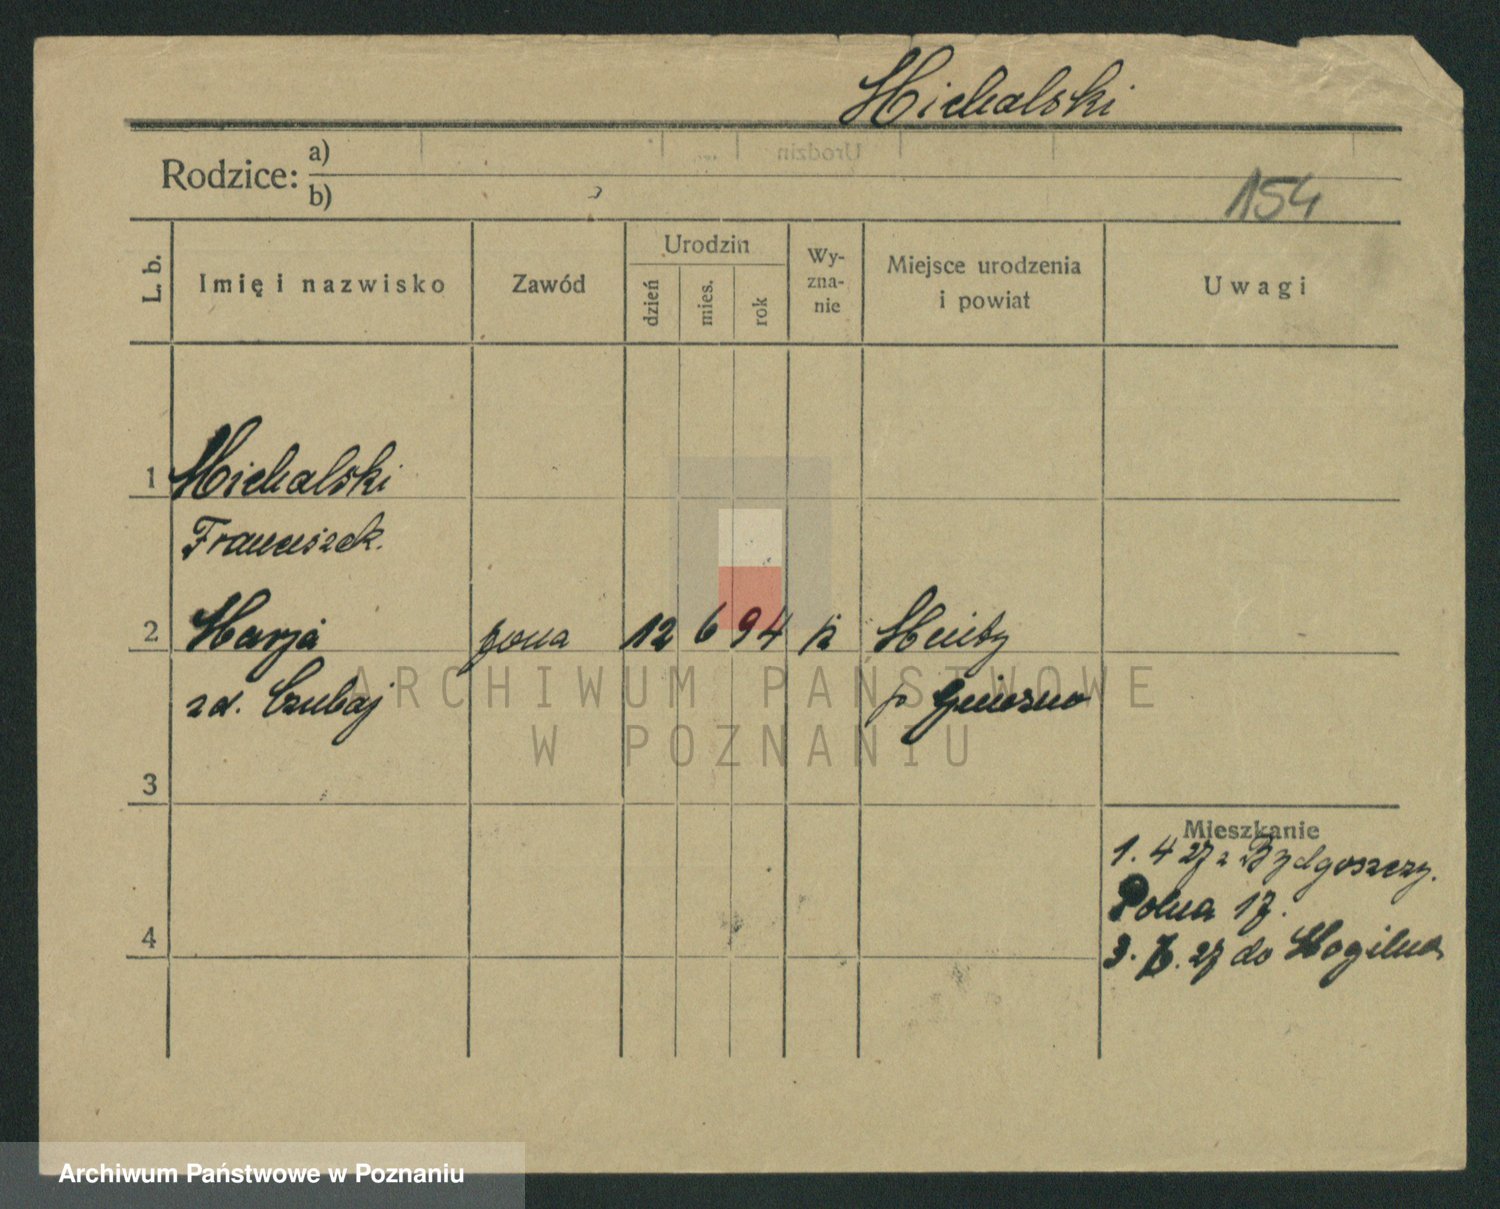 Michalski
Rodzice: a)
b)
154
L. b.
Imię i nazwisko
Zawód
Urodzin
dzień
mies.
rok
Wy-
zna-
nie
Miejsce urodzenia
i powiat
Uwagi
1 Michalski
Franciszek.
2 Marja żona 12 6 94 k
zd. Czubaj p Gniezno
3
Mieszkanie
1. 4 27 z Bydgoszczy.
Polna 17.
4
3. 27 do Mogilna
ARCHIWUM PAŃSTWOWE
W POZNANIU
Archiwum Państwowe w Poznaniu